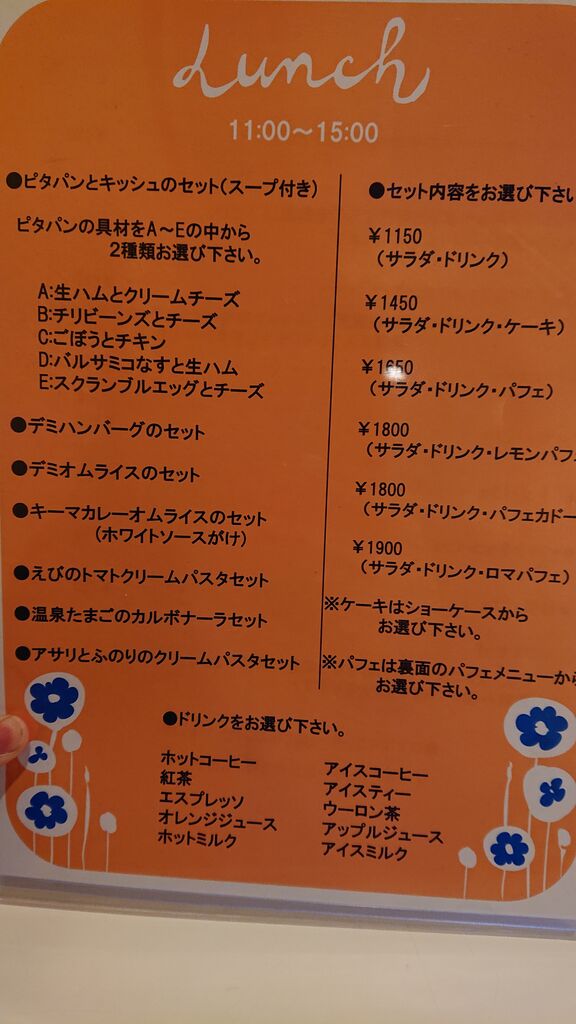 Lunch
11:00～15:00
●ピタパンとキッシュのセット(スープ付き)
ピタパンの具材をA～Eの中から
2種類お選び下さい。
A:生ハムとクリームチーズ
B:チリビーンズとチーズ
C:ごぼうとチキン
D:バルサミコなすと生ハム
E:スクランブルエッグとチーズ
●デミハンバーグのセット
●デミオムライスのセット
●キーマカレーオムライスのセット
(ホワイトソースがけ)
●えびのトマトクリームパスタセット
●温泉たまごのカルボナーラセット
●アサリとふのりのクリームパスタセット
●セット内容をお選び下さい
￥1150
(サラダ・ドリンク)
￥1450
(サラダ・ドリンク・ケーキ)
￥1650
(サラダ・ドリンク・パフェ)
￥1800
(サラダ・ドリンク・レモンパフェ
￥1800
(サラダ・ドリンク・パフェカドー
￥1900
(サラダ・ドリンク・ロマパフェ)
※ケーキはショーケースから
お選び下さい。
※パフェは裏面のパフェメニューから
お選び下さい。
●ドリンクをお選び下さい。
ホットコーヒー
紅茶
エスプレッソ
オレンジジュース
ホットミルク
アイスコーヒー
アイスティー
ウーロン茶
アップルジュース
アイスミルク